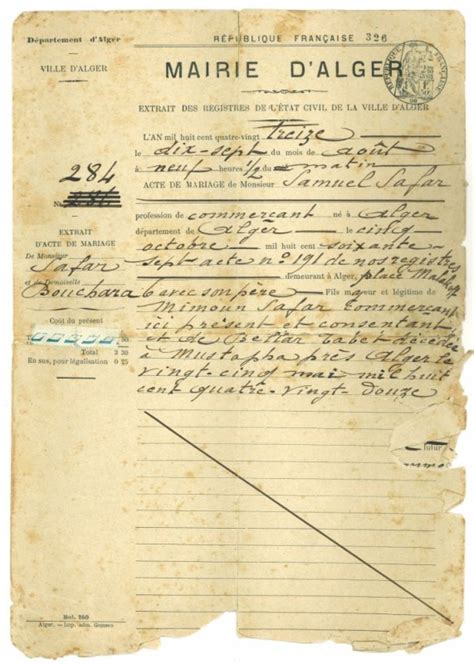 Département d'Alger
RÉPUBLIQUE FRANÇAISE 326
VILLE D'ALGER
MAIRIE D'ALGER
EXTRAIT DES REGISTRES DE L'ÉTAT CIVIL DE LA VILLE D'ALGER
L'AN mil huit cent quatre-vingt Treize
le dix-sept du mois de août
à neuf heures 1/2 matin
284
ACTE DE MARIAGE de Monsieur Samuel Safar
No
profession de commerçant né à Alger
EXTRAIT
D'ACTE DE MARIAGE
De Monsieur
Safar
et de Demoiselle
Bouchara
département de Alger le cinq
octobre mil huit cent soixante
sept acte no 191 de nos registres
demeurant à Alger, place
6 avec son père Fils majeur et légitime de
Mimoun Safar Commerçant
Coût du présent
ici présent et consentant
Total 2 30
En sus, pour légalisation 0 25
et de Beliar Babet décédée
à Mustapha près Alger le
vingt-cinq mai mil huit
cent quatre-vingt-douze
futur
Mod. 260
Alger. — Imp. adm. Gojosso